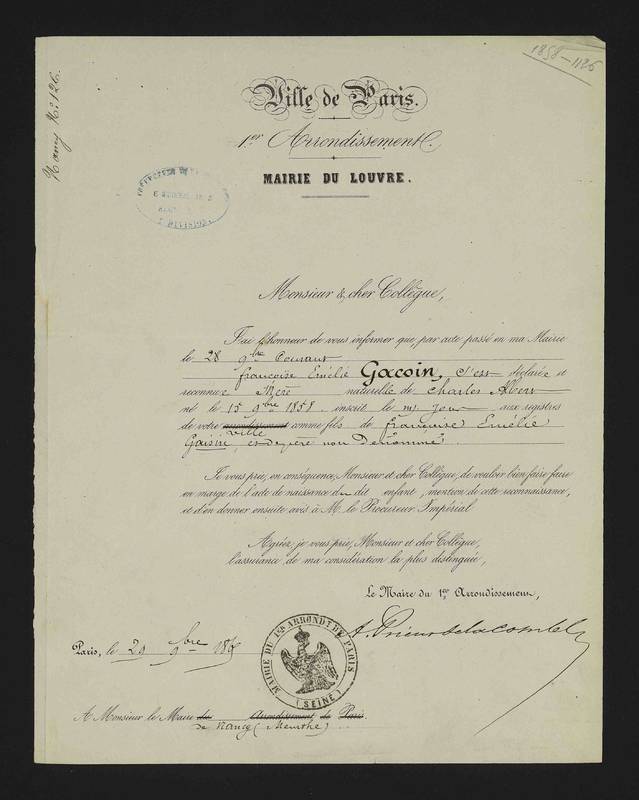 1858-1126
Nancy No. 126.
Ville de Paris.
1er Arrondissement.
MAIRIE DU LOUVRE.
DIVISION
Monsieur & cher Collègue,
J'ai l'honneur de vous informer que, par acte passé en ma Mairie
le 28 9bre Courant
françoise Emélie Gacoin, s'est déclarée et
reconnue Mère naturelle de Charles Albert
né le 15 9bre 1858 inscrit le m. jour aux registres
de votre arrondissement ville comme fils de françoise Emélie
Gaisin, et de père non Dénommé.
Je vous prie, en conséquence, Monsieur et cher Collègue, de vouloir bien faire faire
en marge de l'acte de naissance du dit enfant, mention de cette reconnaissance,
et d'en donner ensuite avis à M. le Procureur Impérial
Agréez, je vous prie, Monsieur et cher Collègue,
l'assurance de ma considération la plus distinguée,
Le Maire du 1er Arrondissement,
Paris, le 29 9bre 186
MAIRIE DU 1ER ARRONDT DE PARIS
(SEINE)
A Monsieur le Maire du Arrondissement de Paris.
de Nancy (Meurthe)